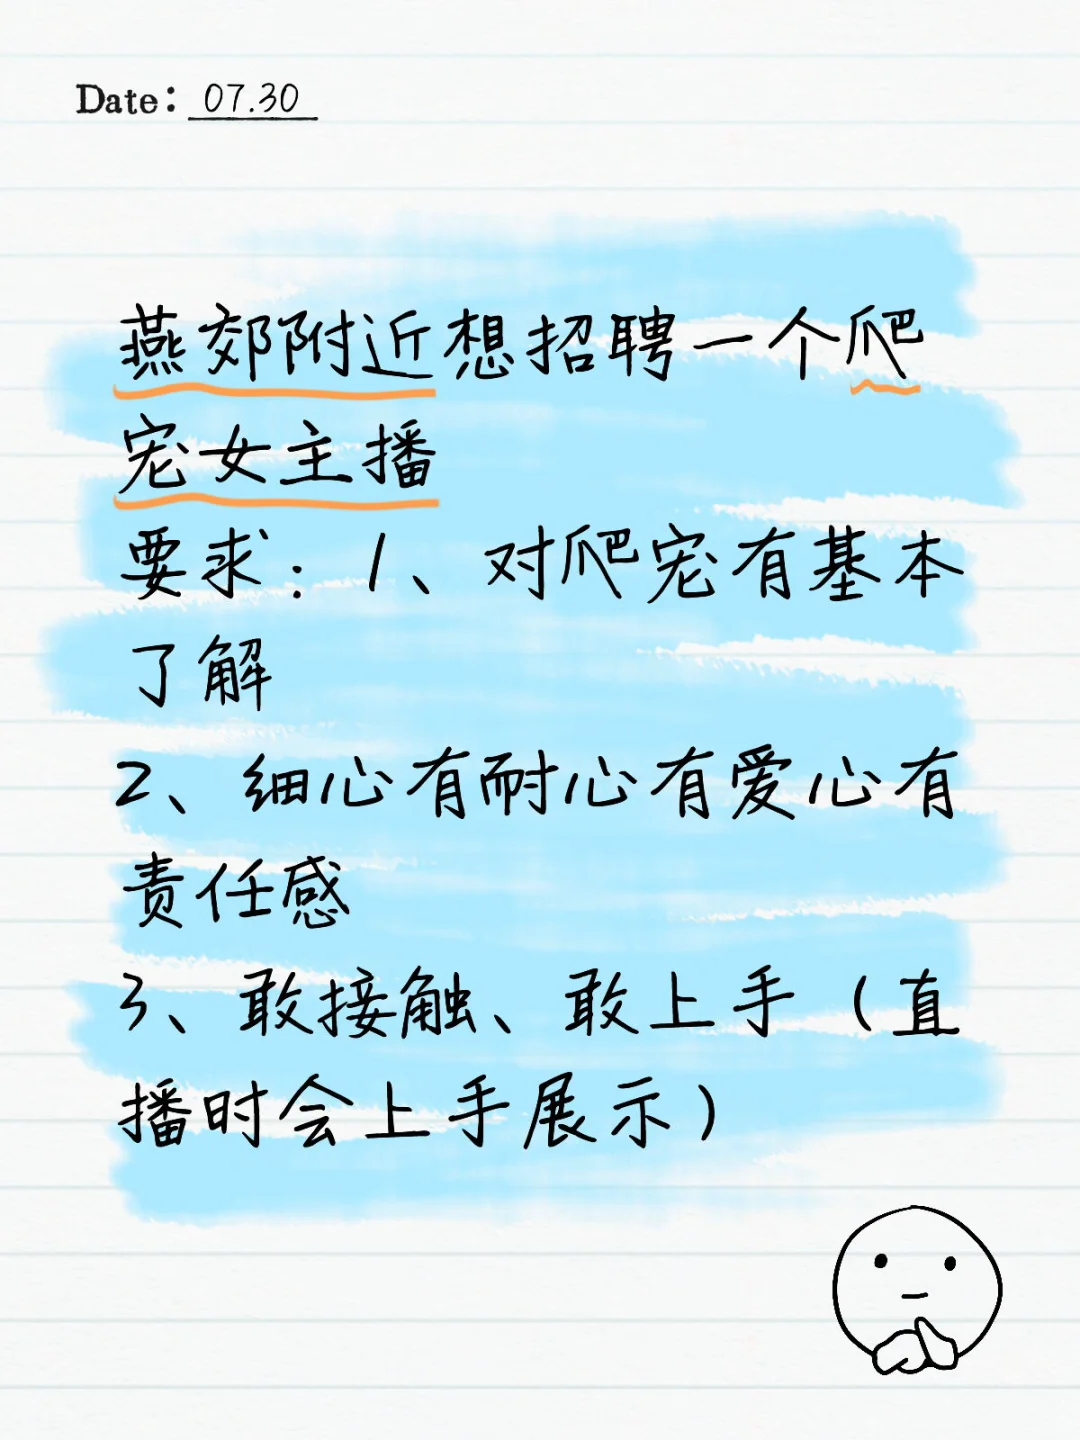 Date: 07.30
燕郊附近想招聘一个爬
宠女主播
要求：1、对爬宠有基本
了解
2、细心有耐心有爱心有
责任感
3、敢接触、敢上手（直
播时会上手展示）